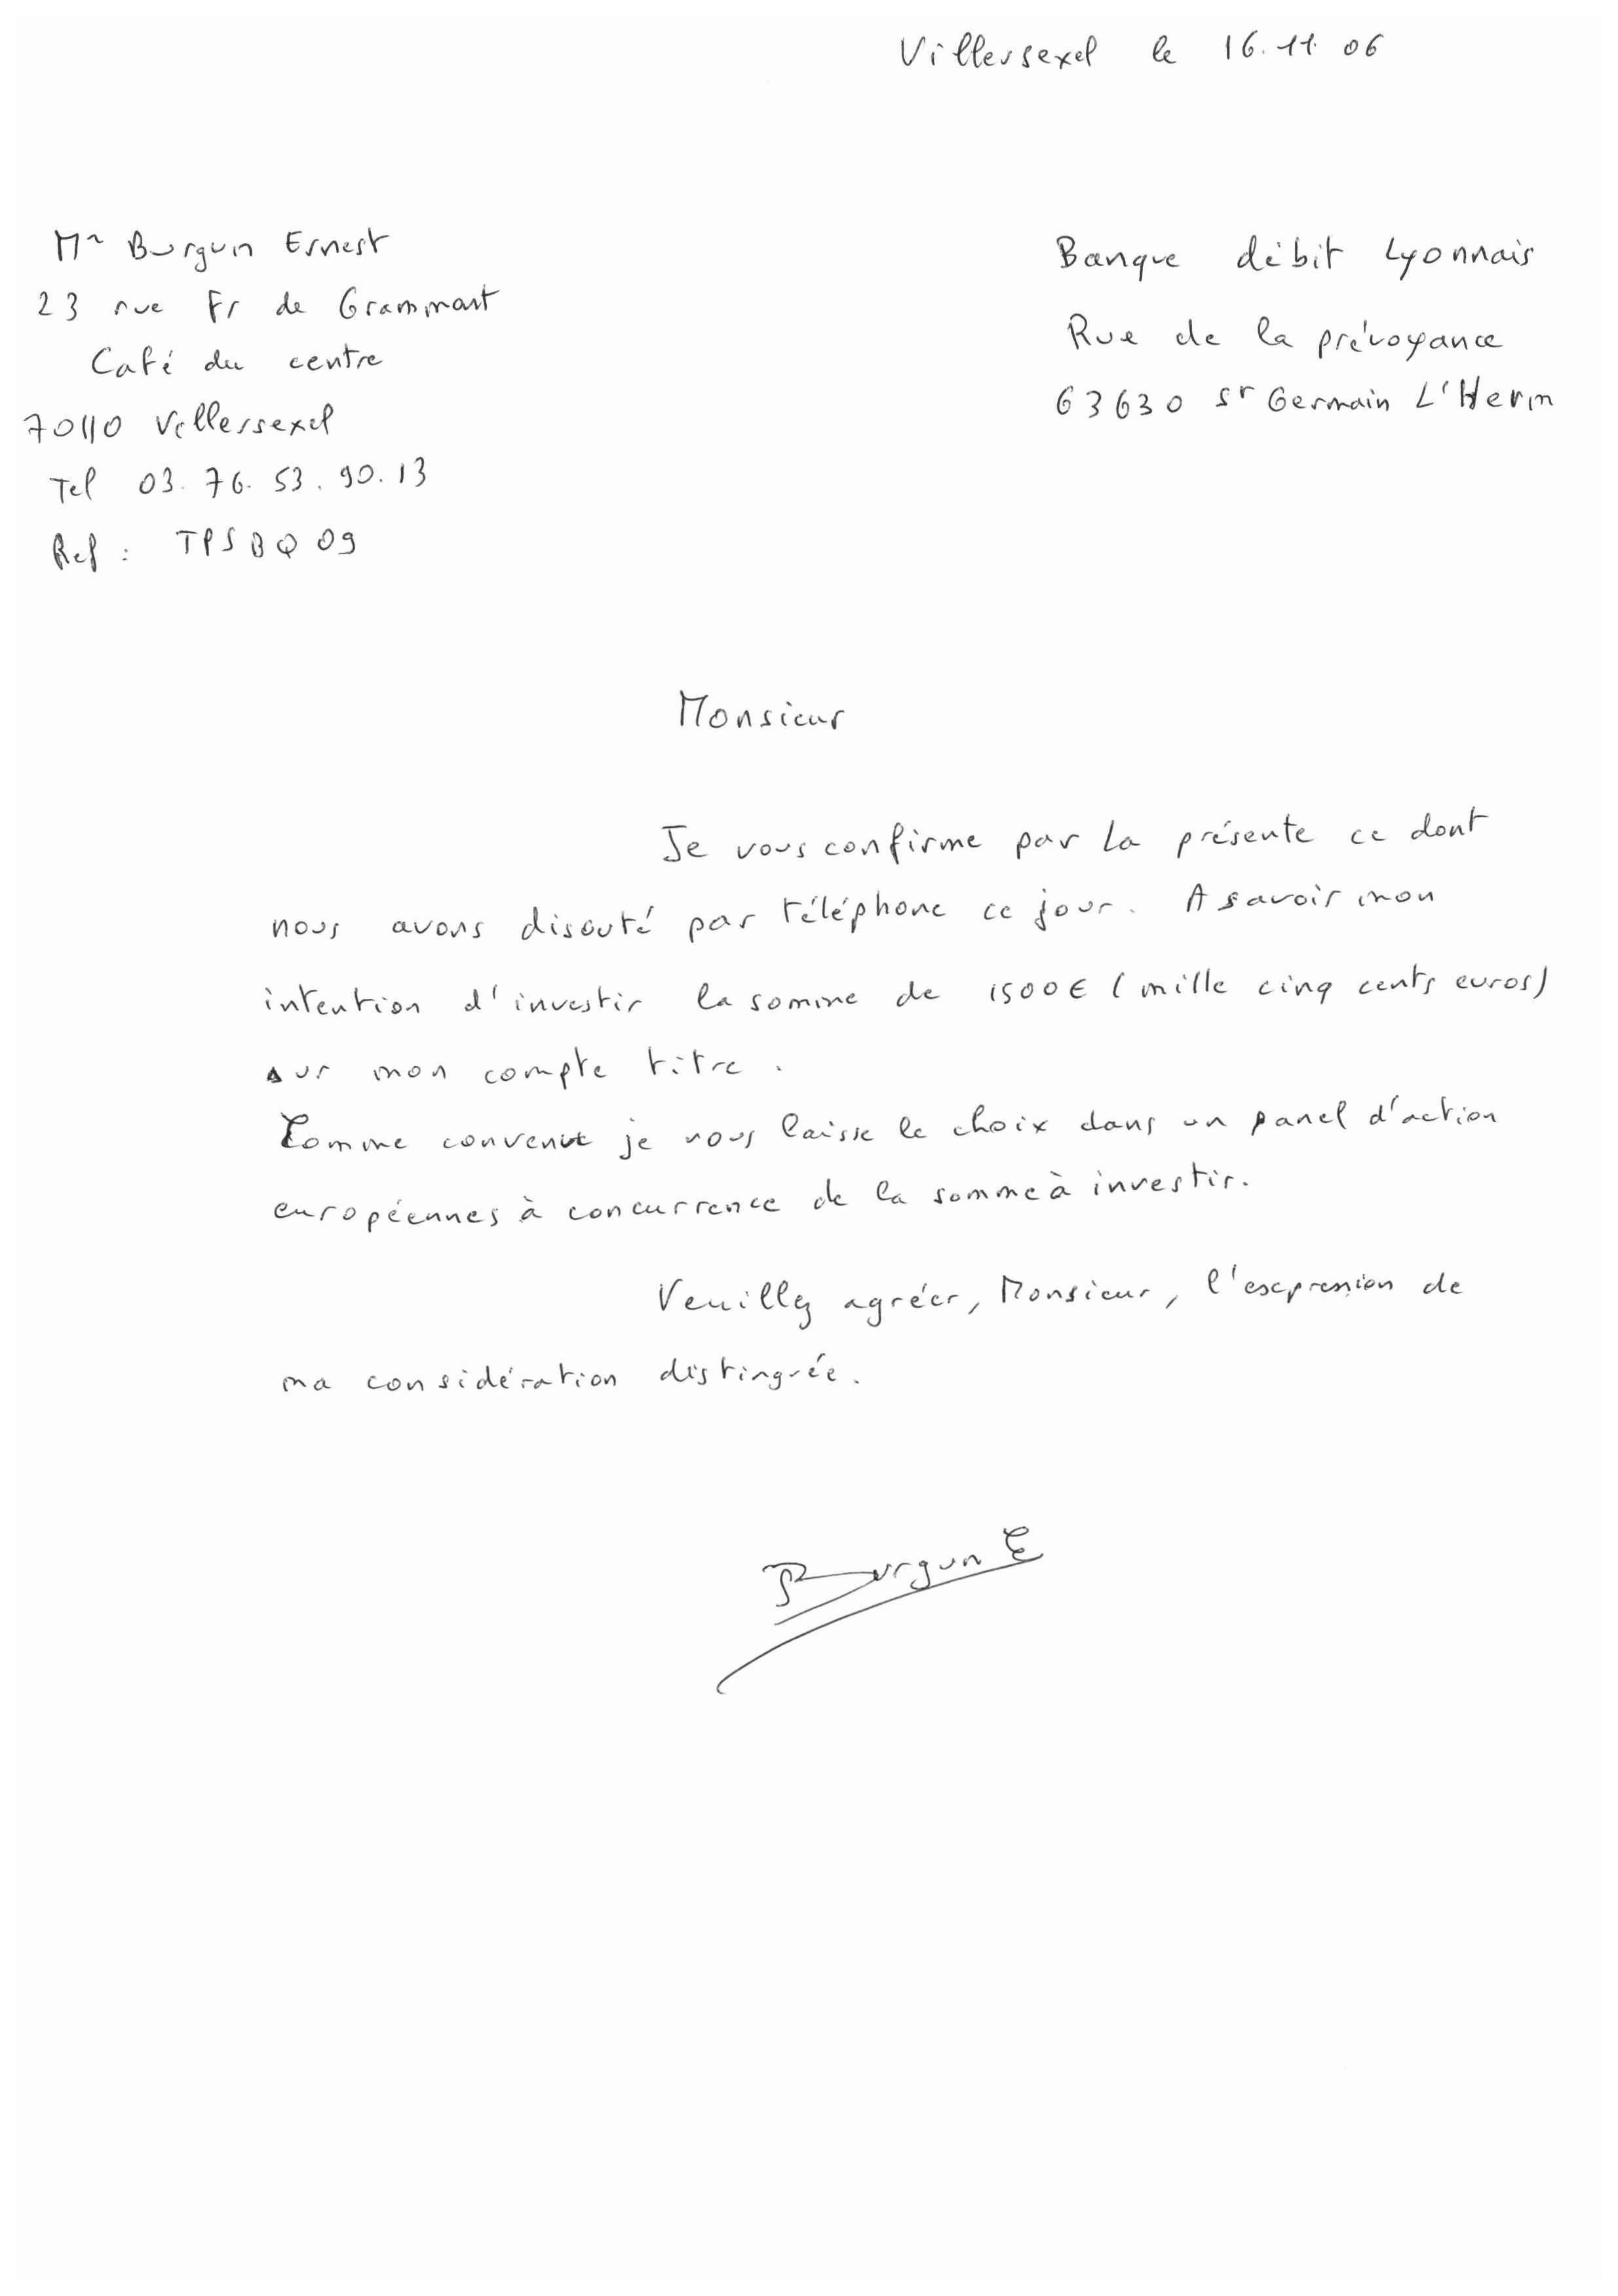 Villersexel le 16.11.06
Mr Burgun Ernest
23 rue Fr de Grammont
Café du centre
70110 Villersexel
Tel 03.76.53.90.13
Ref : TPSBQ09
Banque débit Lyonnais
Rue de la prévoyance
63630 St Germain L'Herm
Monsieur
Je vous confirme par la présente ce dont
nous avons discuté par téléphone ce jour. A savoir mon
intention d'investir la somme de 1500€ (mille cinq cents euros)
sur mon compte titre.
Comme convenu je vous laisse le choix dans un panel d'action
européennes à concurrence de la somme à investir.
Veuillez agréer, Monsieur, l'expression de
ma considération distinguée.
Burgun E